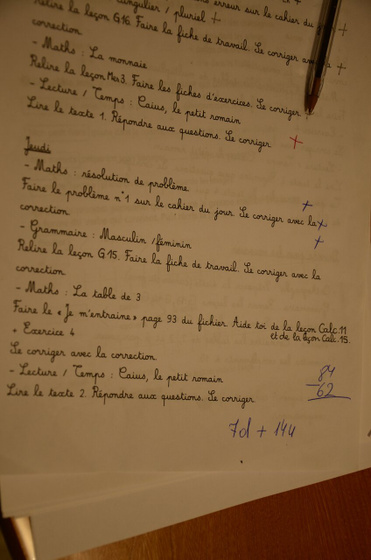 singulier / pluriel +
Relire la leçon G16. Faire la fiche de travail. Se corriger avec la +
correction
- Maths : La monnaie
Relire la leçon Mes3. Faire les fiches d'exercices. Se corriger
- Lecture / Temps : Caius, le petit romain
Lire le texte 1. Répondre aux questions. Se corriger +
Jeudi
- Maths : résolution de problème +
Faire le problème n°1 sur le cahier du jour. Se corriger avec la +
correction
- Grammaire : Masculin / féminin +
Relire la leçon G15. Faire la fiche de travail. Se corriger avec la
correction.
- Maths : La table de 3
Faire le « Je m'entraine » page 93 du fichier. Aide toi de la leçon Calc.11
et de la leçon Calc.15.
+ Exercice 4
Se corriger avec la correction.
- Lecture / Temps : Caius, le petit romain
Lire le texte 2. Répondre aux questions. Se corriger
84
-62
7d + 144